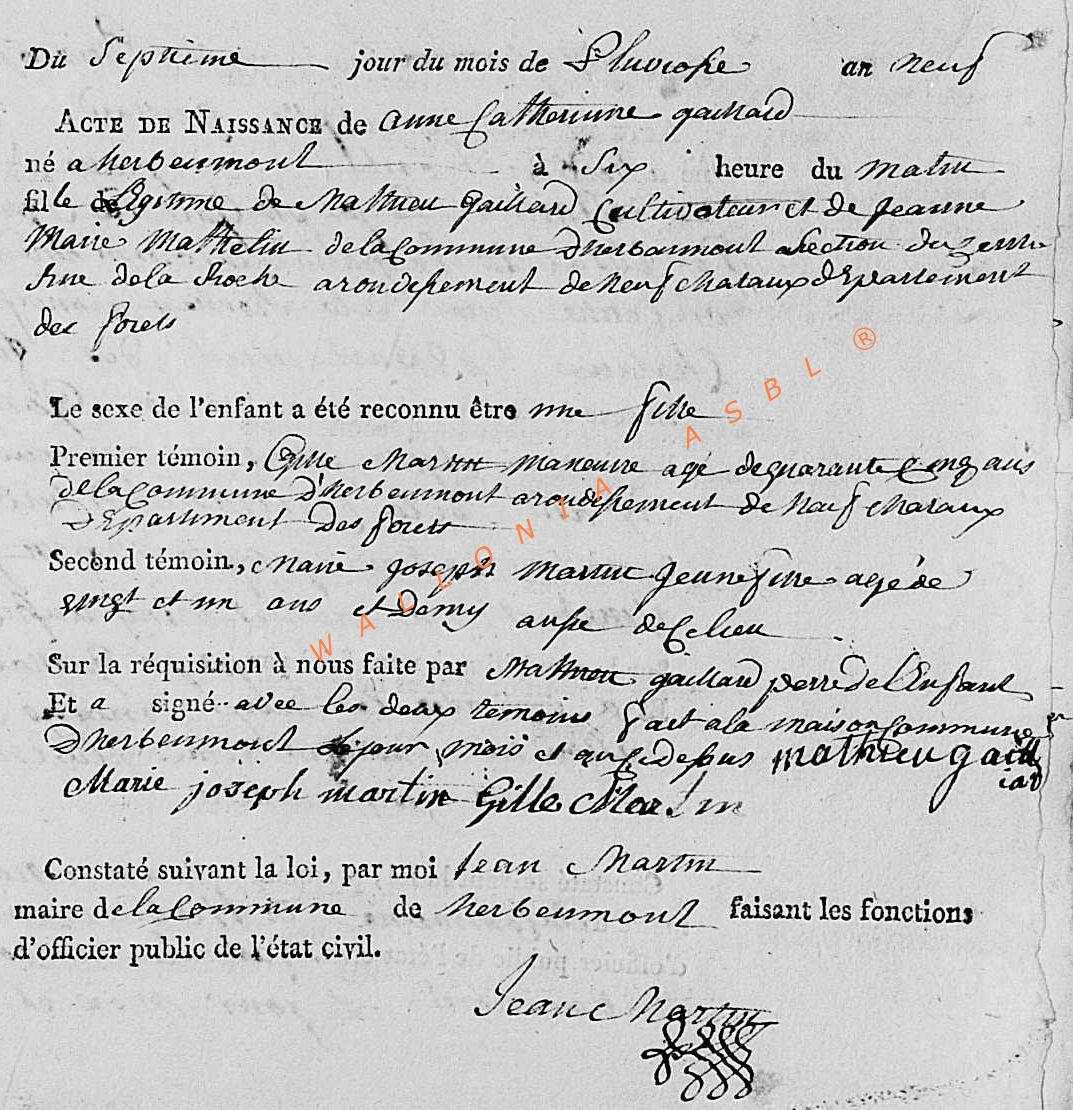 Du Septieme jour du mois de Pluviose an neuf
ACTE DE NAISSANCE de anne Catherinne gaillard
né a herbeumont à Six heure du matin
fille de legitime de Mathieu gaillard Cultivateur et de jeanne
Marie Mathelin de la Commune dherbeumont Section du
de la Roche arondissement de neufchataux département
des forets
Le sexe de l'enfant a été reconnu être une fille
Premier témoin, Gille Martin maneuvre agé de quarante Cinq ans
de la Commune d'herbeumont arondissement de neufchataux
Département Des forets
Second témoin, Marie joseph Martin jeune fille agé de
vingt et un ans et Demy ausse de Ce lieu
Sur la réquisition à nous faite par Mathieu gaillard perre de l'Enfant
Et a signé avec les deux temoins fait a la maison Commune
Dherbeumont le jour mois et an que dessus mathieu gaill
iar
Marie joseph martin Gille Martin
Constaté suivant la loi, par moi Jean Martin
maire de la Commune de herbeumont faisant les fonctions
d'officier public de l'état civil.
Jean Martin
WALLONIA ASBL ®